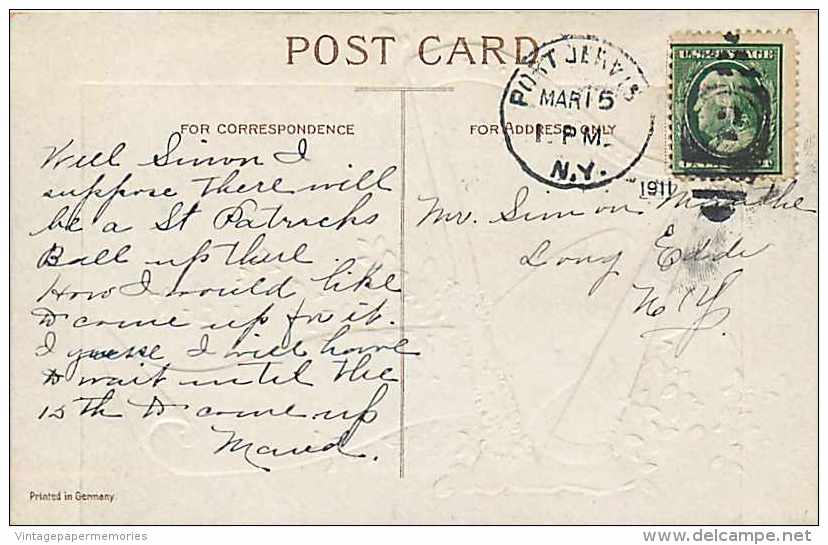 POST CARD
PORT JERVIS
MAR 15
1 PM
N.Y.
1911
FOR CORRESPONDENCE
FOR ADDRESS ONLY
Well Simon I
suppose there will
be a St Patricks
Ball up there.
How I would like
to come up for it.
I guess I will have
to wait until the
15th to come up
Maud.
Mr. Simon
Long Eddy
N Y.
Printed in Germany.
Vintagepapermemories
delcampe.net